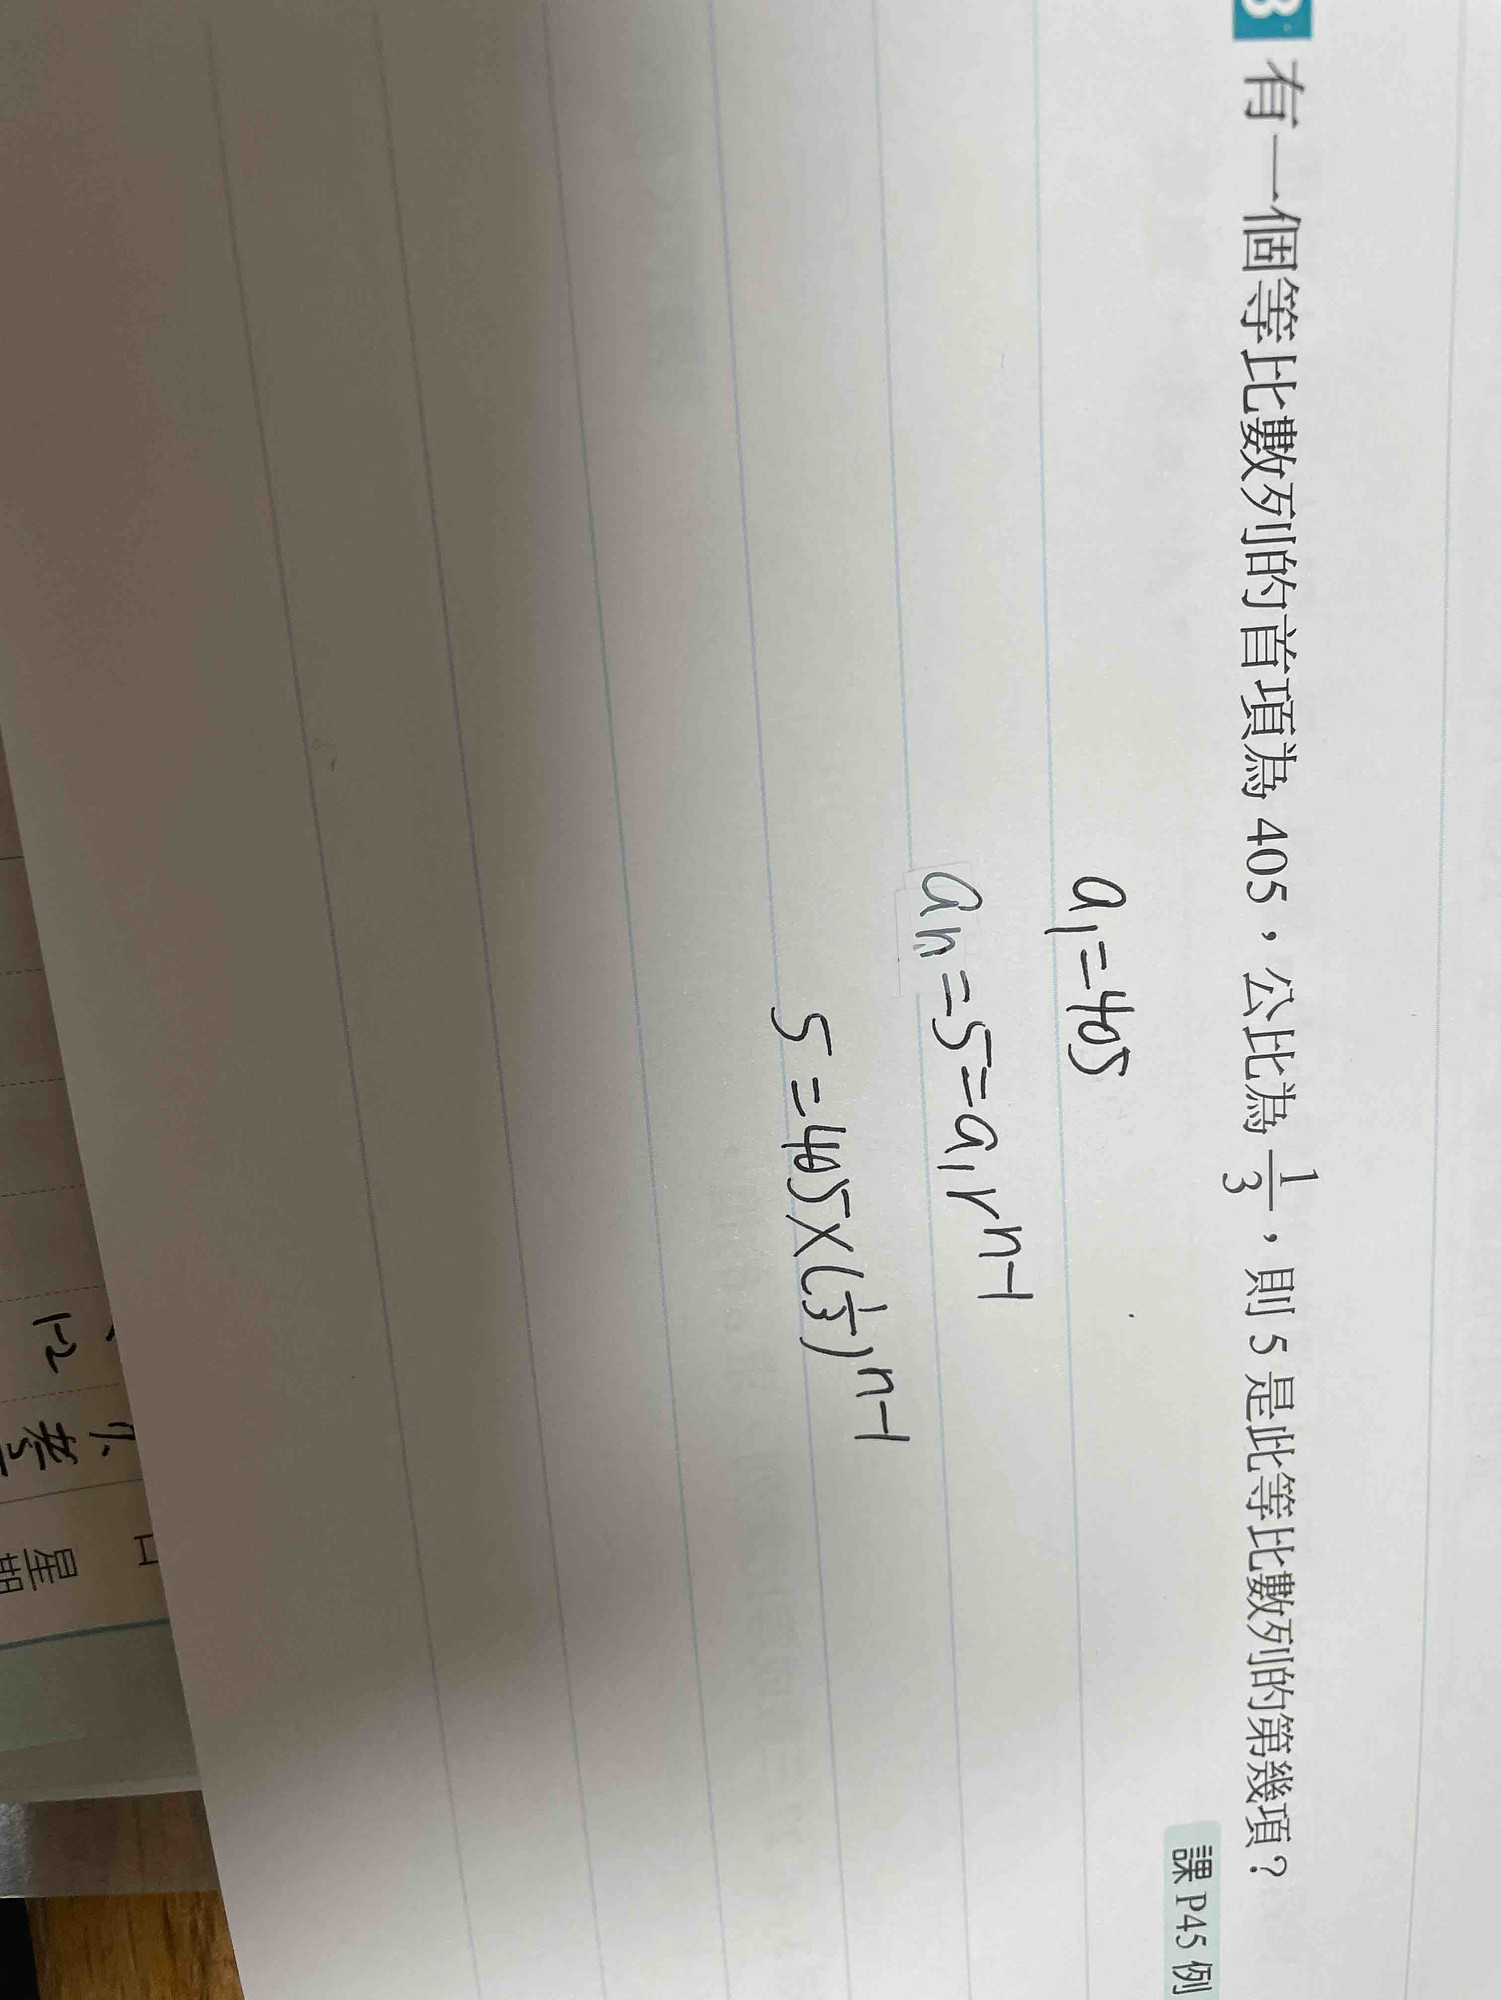 3 有一個等比數列的首項為 405，公比為 1/3，則 5 是此等比數列的第幾項？
課 P45 例
a₁=405
aₙ=5=a₁rⁿ⁻¹
5=405×(1/3)ⁿ⁻¹
1-2
考
日
星期